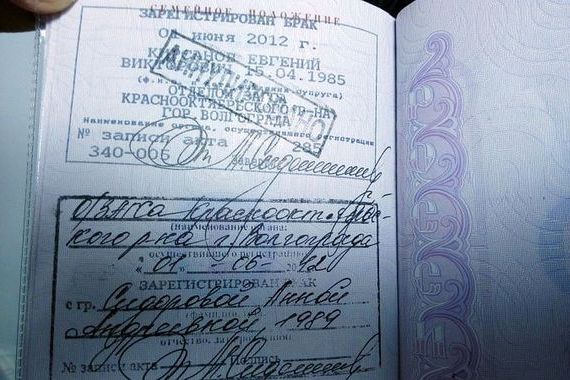 СЕМЕЙНОЕ ПОЛОЖЕНИЕ
ЗАРЕГИСТРИРОВАН БРАК
июня 2012 г.
ЕВГЕНИЙ
15.04.1985
супруга)
КРАСНООКТЯБРЬСКОГО Р-НА
ГОР. ВОЛГОГРАДА
Наименование органа, осуществившего регистрацию
№ записи акта 285
340-006
ОЗАГСа Краснооктябрьс-
кого р-на г. Волгограда
(наименование органа,
осуществившего регистрацию)
"01" 06 2012
ЗАРЕГИСТРИРОВАН БРАК
с гр. Сидоровой Анной
Андреевной, 1989
отчество, дата рождения)
№ записи акта Подпись